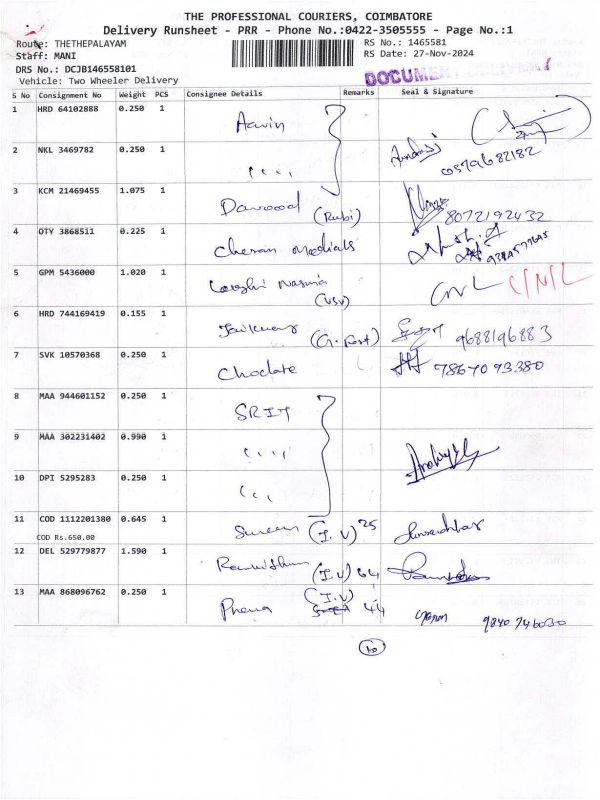 THE PROFESSIONAL COURIERS, COIMBATORE
Delivery Runsheet - PRR - Phone No.:0422-3505555 - Page No.:1
Route: THETHEPALAYAM
RS No.: 1465581
Staff: MANI
RS Date: 27-Nov-2024
DRS No.: DCJB146558101
Vehicle: Two Wheeler Delivery
DOCUMENT
S No Consignment No Weight PCS Consignee Details Remarks Seal & Signature
1 HRD 64102888 0.250 1 Aavin
2 NKL 3469782 0.250 1 " "
3 KCM 21469455 1.075 1 Dawood (Rubi) 8072192432
4 OTY 3868511 0.225 1 Cheran medials
5 GPM 5436000 1.020 1 (VSV) CNL CNL
6 HRD 744169419 0.155 1 9688196883
7 SVK 10570368 0.250 1 Choclate 7867093380
8 MAA 944601152 0.250 1 SRIT
9 MAA 302231402 0.990 1 " "
10 DPI 5295283 0.250 1 " "
11 COD 1112201380 0.645 1 (I.V) 25
COD Rs.650.00
12 DEL 529779877 1.590 1 (I.V) 64
13 MAA 868096762 0.250 1 (I.V) 44 9840746030
10